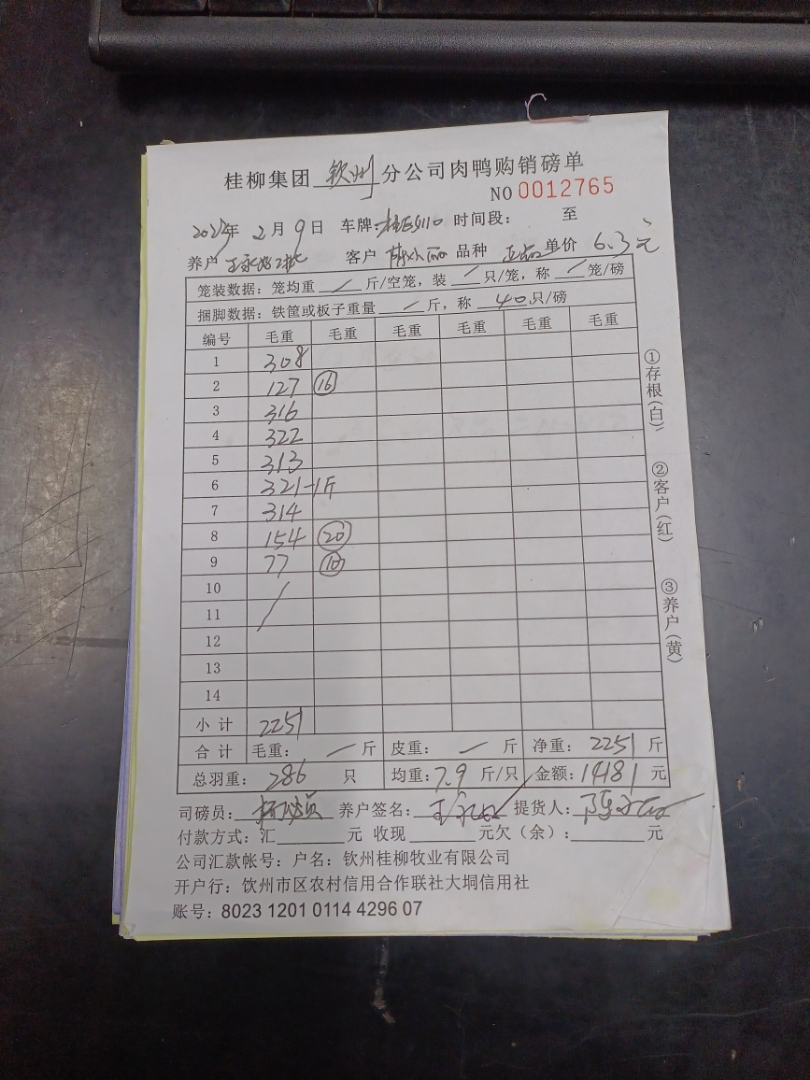 桂柳集团 钦州 分公司肉鸭购销磅单
NO 0012765
2023年 2月 9日 车牌: 时间段: 至
养户 客户 品种 正品 单价 6.3元
笼装数据:笼均重 / 斤/空笼,装 / 只/笼,称 / 笼/磅
捆脚数据:铁筐或板子重量 / 斤,称 40 只/磅
编号 毛重 毛重 毛重 毛重 毛重 毛重
1 308
2 127 16
3 316
4 322
5 313
6 321-1斤
7 314
8 154 20
9 77 10
10 /
11
12
13
14
小计 2251
合计 毛重: / 斤 皮重: / 斤 净重: 2251 斤
总羽重: 286 只 均重: 7.9 斤/只 金额: 14181 元
司磅员: 养户签名: 提货人:
付款方式:汇 元 收现 元欠(余): 元
公司汇款帐号:户名:钦州桂柳牧业有限公司
开户行:钦州市区农村信用合作联社大垌信用社
账号:8023 1201 0114 4296 07
①存根(白)
②客户(红)
③养户(黄)